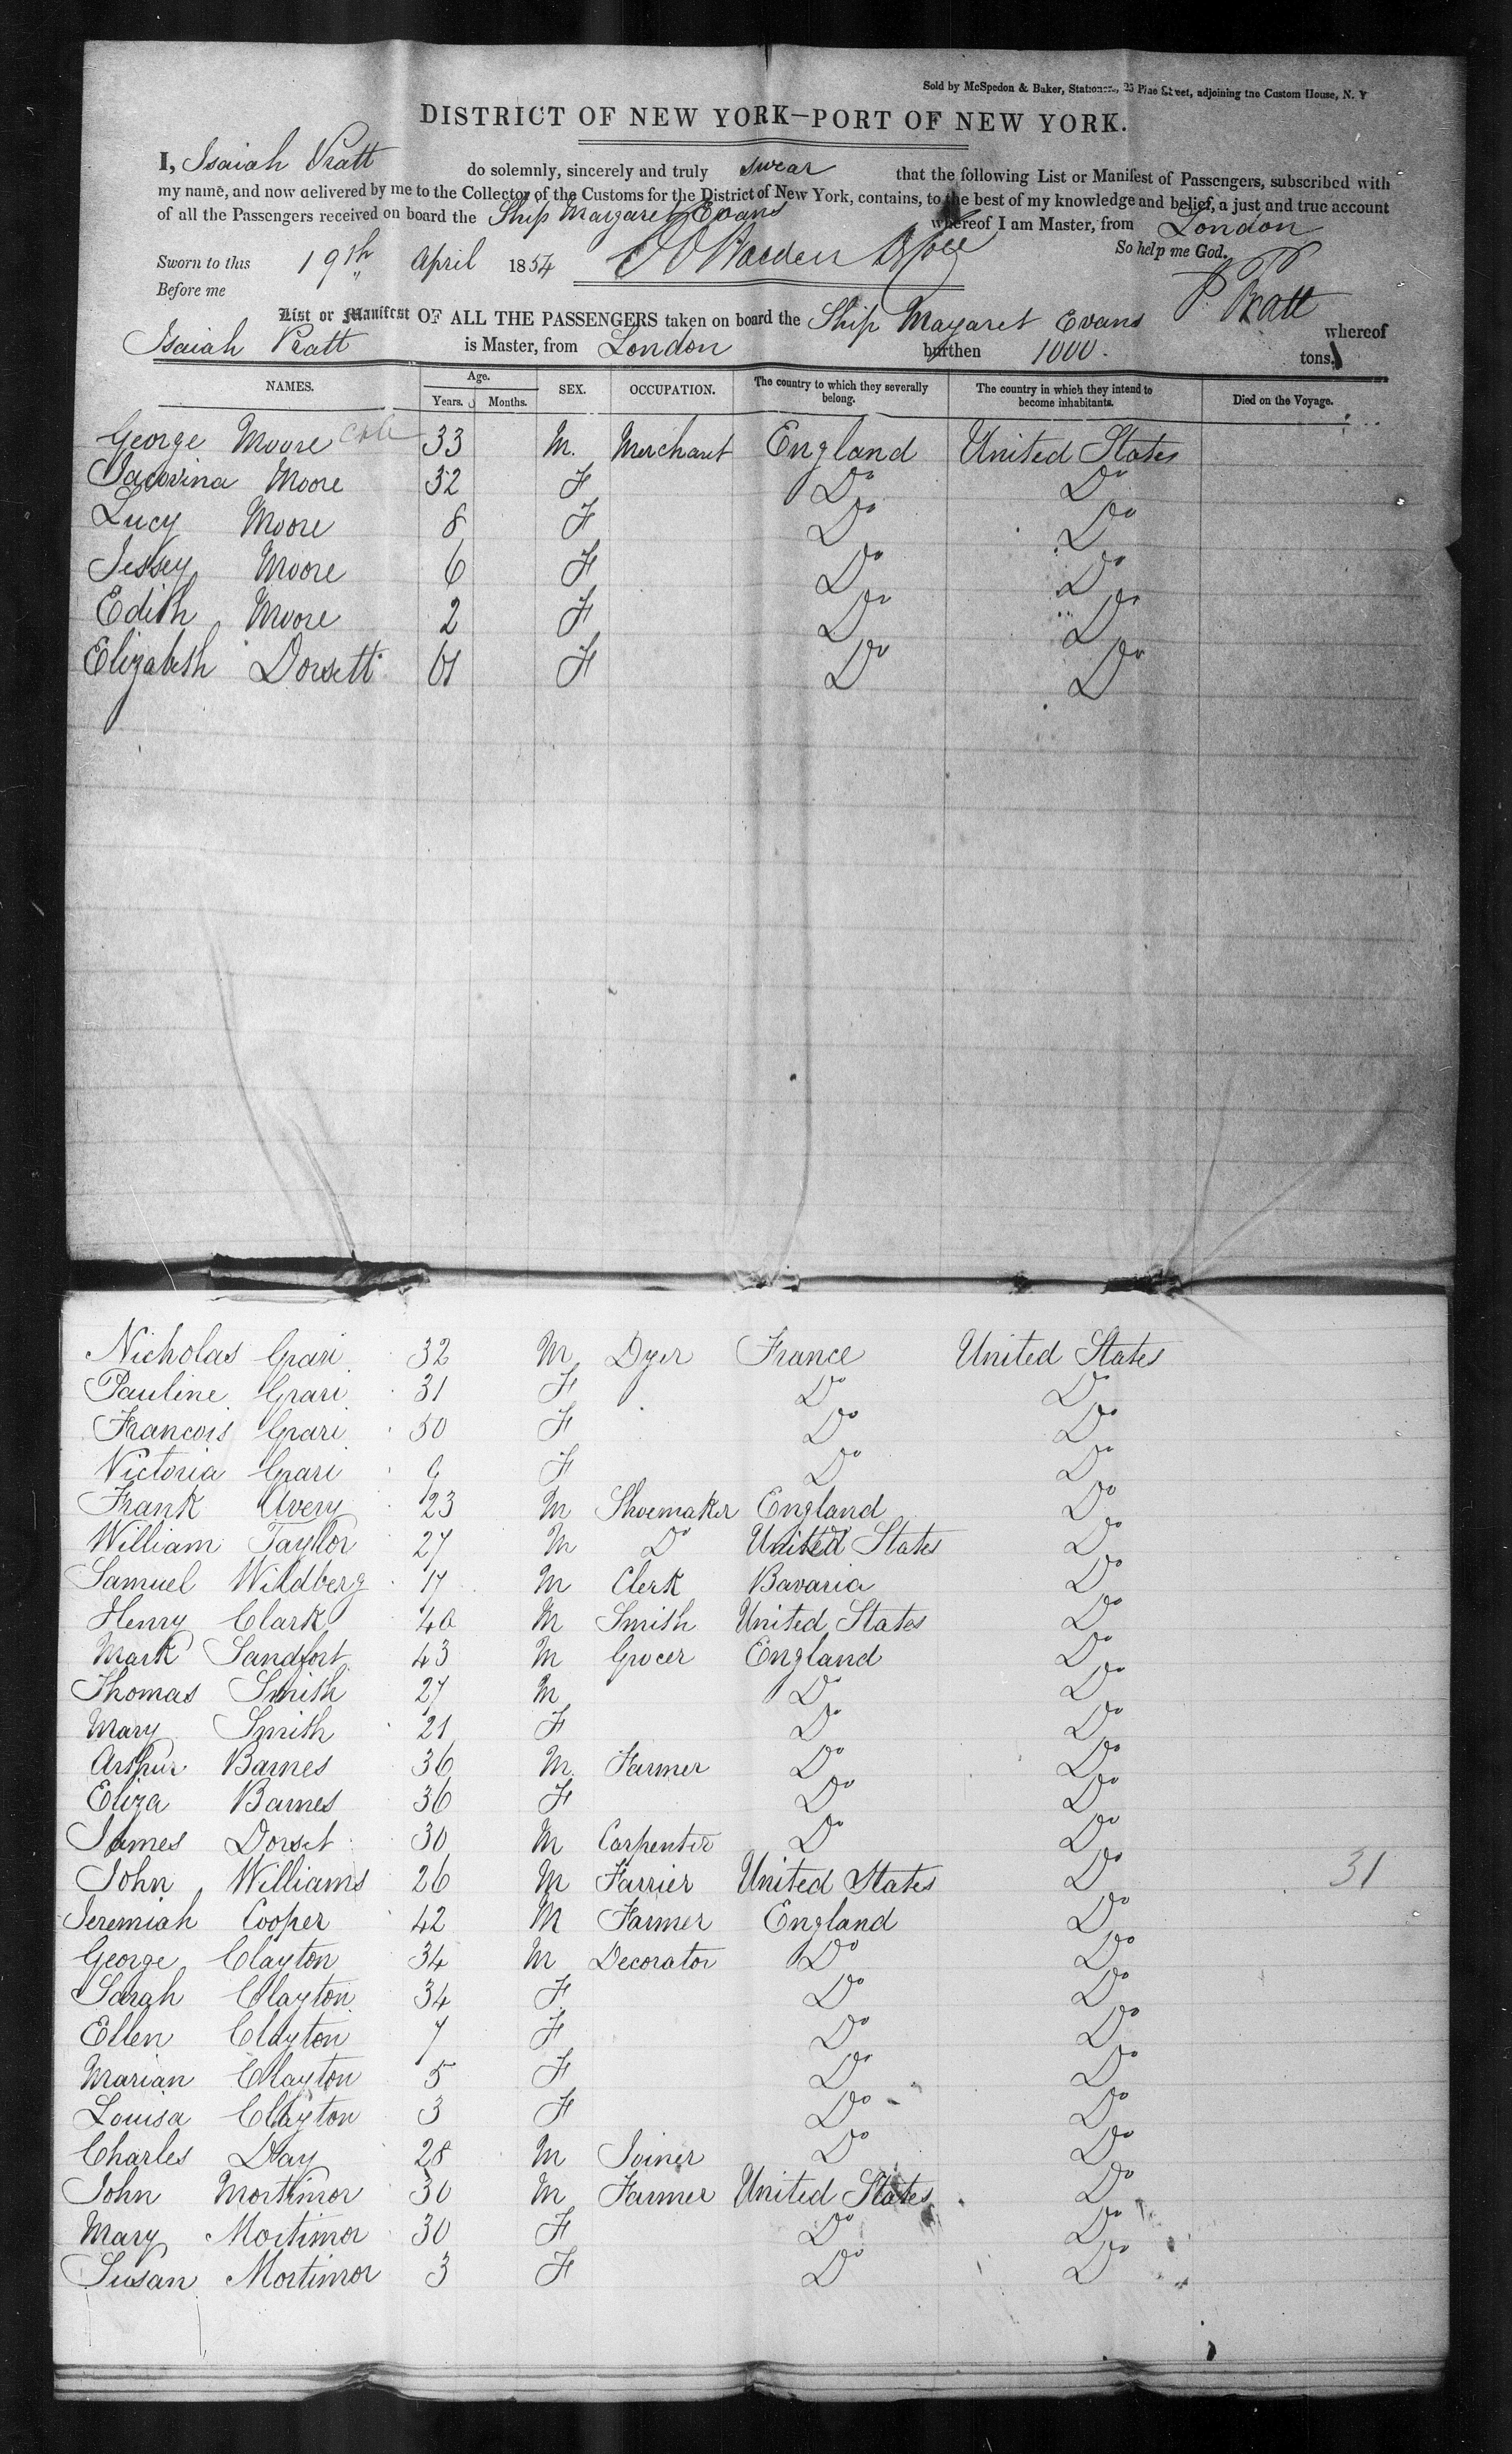 Sold by McSpedon & Baker, Stationers, 25 Pine Street, adjoining the Custom House, N. Y
DISTRICT OF NEW YORK—PORT OF NEW YORK.
I, Isaiah Pratt do solemnly, sincerely and truly swear that the following List or Manifest of Passengers, subscribed with
my name, and now delivered by me to the Collector of the Customs for the District of New York, contains, to the best of my knowledge and belief, a just and true account
of all the Passengers received on board the Ship Margaret Evans whereof I am Master, from London
Sworn to this 19th April 1854 So help me God.
Before me P. Pratt
List or Manifest OF ALL THE PASSENGERS taken on board the Ship Margaret Evans whereof
Isaiah Pratt is Master, from London burthen 1000. tons.
NAMES. Age. Years. Months. SEX. OCCUPATION. The country to which they severally belong. The country in which they intend to become inhabitants. Died on the Voyage.
George Moore 33 M. Merchant England United States
Moore 32 F Do Do
Lucy Moore 8 F Do Do
Jessey Moore 6 F Do Do
Edith Moore 2 F Do Do
Elizabeth Dorsett 61 F Do Do
Nicholas Grari 32 M Dyer France United States
Pauline Grari 31 F Do Do
Francois Grari 50 F Do Do
Victoria Grari 9 F Do Do
Frank Avery 23 M Shoemaker England Do
William Tayllor 27 M Do United States Do
Samuel Wildberg 17 M Clerk Bavaria Do
Henry Clark 40 M Smith United States Do
Mark Sandfort 43 M Grocer England Do
Thomas Smith 27 M Do Do
Mary Smith 21 F Do Do
Arthur Barnes 36 M. Farmer Do Do
Eliza Barnes 36 F Do Do
James Dorset 30 M Carpenter Do Do
John Williams 26 M Farrier United States Do 31
Jeremiah Cooper 42 M Farmer England Do
George Clayton 34 M Decorator Do Do
Sarah Clayton 34 F Do Do
Ellen Clayton 7 F Do Do
Marian Clayton 5 F Do Do
Louisa Clayton 3 F Do Do
Charles Day 28 M Joiner Do Do
John Mortimor 30 M Farmer United States Do
Mary Mortimor 30 F Do Do
Susan Mortimor 3 F Do Do